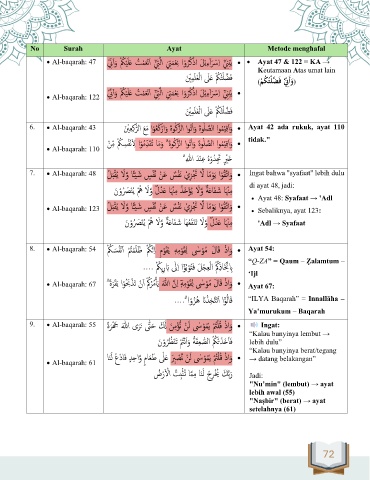 No Surah Ayat Metode menghafal
• Al-baqarah: 47
يٰبَنِيْٓ اِسْرَاۤءِيْلَ اذْكُرُوْا نِعْمَتِيَ الَّتِيْٓ اَنْعَمْتُ عَلَيْكُمْ وَاَنِّيْ •
فَضَّلْتُكُمْ عَلَى الْعٰلَمِيْنَ
• Al-baqarah: 122
يٰبَنِيْٓ اِسْرَاۤءِيْلَ اذْكُرُوْا نِعْمَتِيَ الَّتِيْٓ اَنْعَمْتُ عَلَيْكُمْ وَاَنِّيْ •
فَضَّلْتُكُمْ عَلَى الْعٰلَمِيْنَ
• Ayat 47 & 122 = KA →
Keutamaan Atas umat lain
(وَاَنِّيْ فَضَّلْتُكُمْ)
6. • Al-baqarah: 43
وَاَقِيْمُوا الصَّلٰوةَ وَاٰتُوا الزَّكٰوةَ وَارْكَعُوْا مَعَ الرّٰكِعِيْنَ •
• Al-baqarah: 110
وَاَقِيْمُوا الصَّلٰوةَ وَاٰتُوا الزَّكٰوةَ ۗ وَمَا تُقَدِّمُوْا لِاَنْفُسِكُمْ مِّنْ •
خَيْرٍ تَجِدُوْهُ عِنْدَ اللّٰهِ ۗ
• Ayat 42 ada rukuk, ayat 110
tidak."
7. • Al-baqarah: 48
وَاتَّقُوْا يَوْمًا لَّا تَجْزِيْ نَفْسٌ عَنْ نَّفْسٍ شَيْـًٔا وَّلَا يُقْبَلُ •
مِنْهَا شَفَاعَةٌ وَّلَا يُؤْخَذُ مِنْهَا عَدْلٌ وَّلَا هُمْ يُنْصَرُوْنَ
• Al-baqarah: 123
وَاتَّقُوْا يَوْمًا لَّا تَجْزِيْ نَفْسٌ عَنْ نَّفْسٍ شَيْـًٔا وَّلَا يُقْبَلُ •
مِنْهَا عَدْلٌ وَّلَا تَنْفَعُهَا شَفَاعَةٌ وَّلَا هُمْ يُنْصَرُوْنَ
Ingat bahwa "syafaat" lebih dulu
di ayat 48, jadi:
• Ayat 48: Syafaat → 'Adl
• Sebaliknya, ayat 123:
'Adl → Syafaat
8. • Al-baqarah: 54
وَاِذْ قَالَ مُوْسٰى لِقَوْمِهٖ يٰقَوْمِ اِنَّكُمْ ظَلَمْتُمْ اَنْفُسَكُمْ •
بِاتِّخَاذِكُمُ الْعِجْلَ فَتُوْبُوْٓا اِلٰى بَارِىِٕكُمْ ....
• Al-baqarah: 67
وَاِذْ قَالَ مُوْسٰى لِقَوْمِهٖٓ اِنَّ اللّٰهَ يَأْمُرُكُمْ اَنْ تَذْبَحُوْا بَقَرَةً ۗ •
قَالُوْٓا اَتَتَّخِذُنَا هُزُوًا ۗ....
Ayat 54:
"Q-Z4" = Qaum – Zalamtum –
'Ijl
Ayat 67:
"ILYA Baqarah" = Innallāha –
Ya'murukum – Baqarah
9. • Al-baqarah: 55
وَاِذْ قُلْتُمْ يٰمُوْسٰى لَنْ نُّؤْمِنَ لَكَ حَتّٰى نَرَى اللّٰهَ جَهْرَةً •
فَاَخَذَتْكُمُ الصّٰعِقَةُ وَاَنْتُمْ تَنْظُرُوْنَ
• Al-baqarah: 61
وَاِذْ قُلْتُمْ يٰمُوْسٰى لَنْ نَّصْبِرَ عَلٰى طَعَامٍ وَّاحِدٍ فَادْعُ لَنَا •
رَبَّكَ يُخْرِجْ لَنَا مِمَّا تُنْۢبِتُ الْاَرْضُ
Ingat:
"Kalau bunyinya lembut →
lebih dulu"
"Kalau bunyinya berat/tegang
→ datang belakangan"
Jadi:
"Nu'min" (lembut) → ayat
lebih awal (55)
"Naṣbir" (berat) → ayat
setelahnya (61)
72